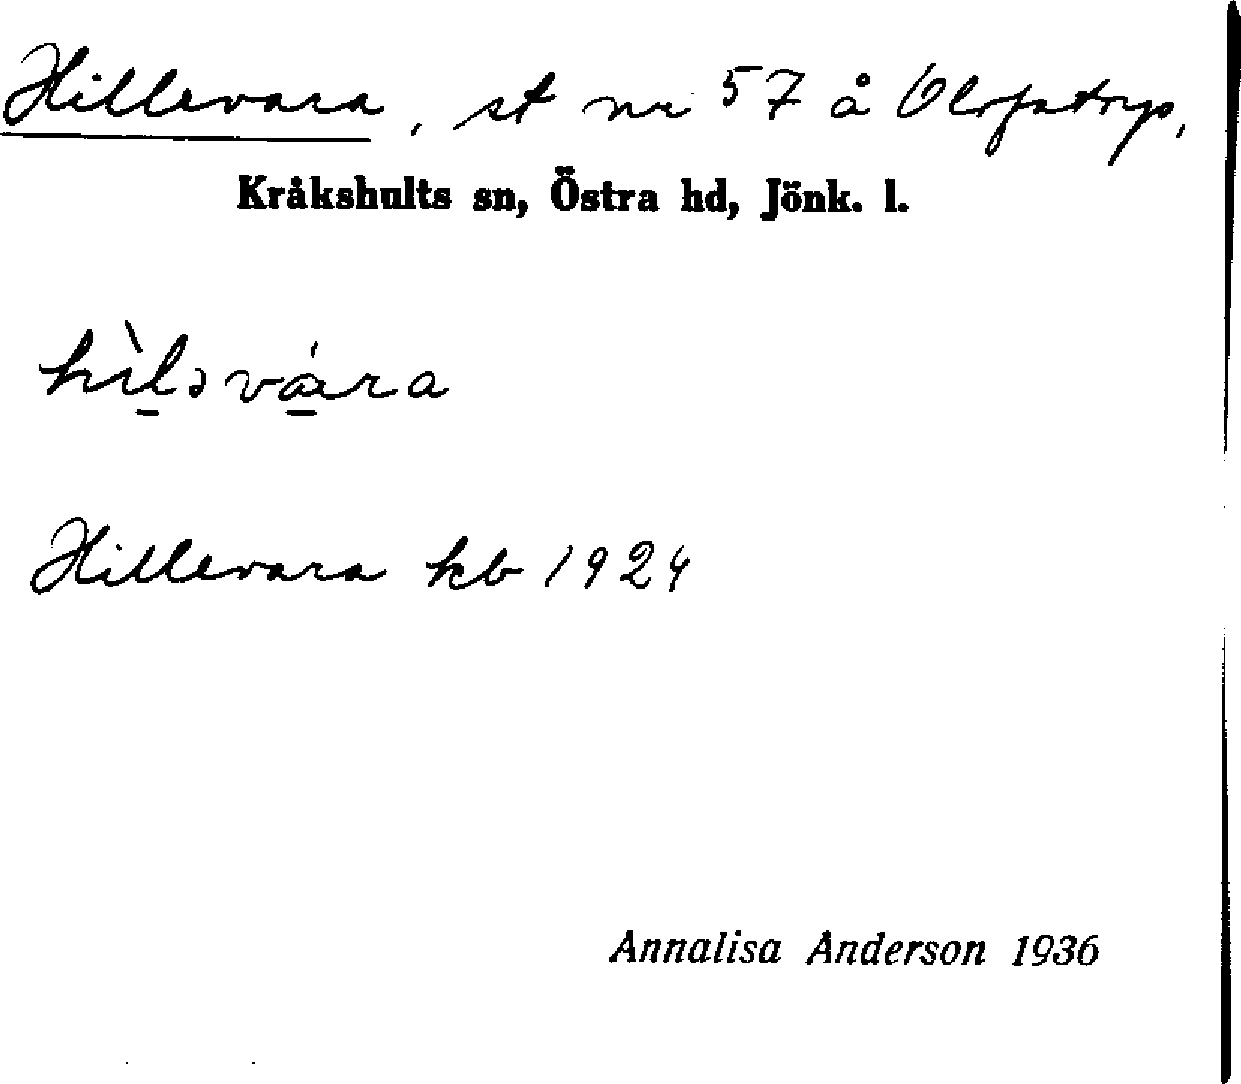 Hillevara, st nr 57 å Olofstorp,
Kråkshults sn, Östra hd, Jönk. l.
Hillevara kb 1924
Annalisa Anderson 1936